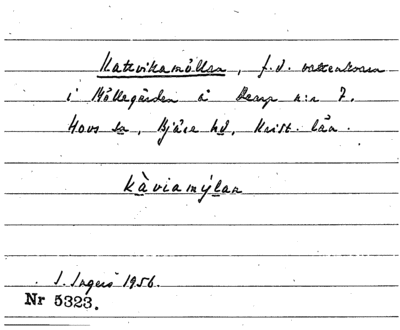 Kattvikamöllan, f.d. vattenkvarn
i Möllegården å Derup n:r 7.
Hovs sn, Bjäre hd, Krist. län.
kàviamýlan
I. Ingers 1956.
Nr 5323.